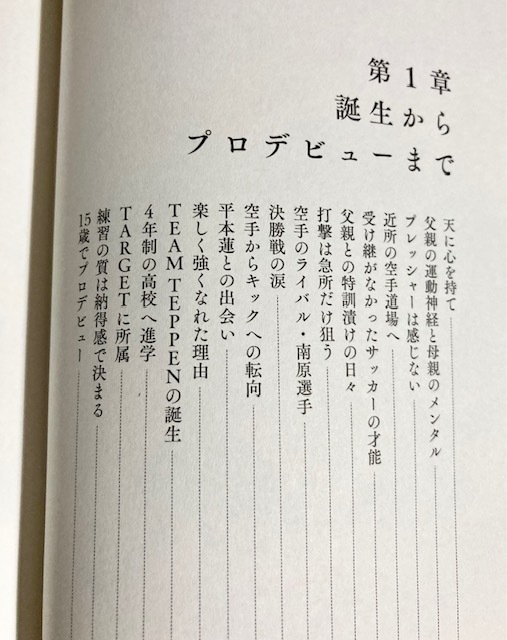 第1章
誕生から
プロデビューまで
天に心を持て
父親の運動神経と母親のメンタル
プレッシャーは感じない
近所の空手道場へ
受け継がなかったサッカーの才能
父親との特訓漬けの日々
打撃は急所だけ狙う
空手のライバル・南原選手
決勝戦の涙
空手からキックへの転向
平本蓮との出会い
楽しく強くなれた理由
TEAM TEPPENの誕生
4年制の高校へ進学
TARGETに所属
練習の質は納得感で決まる
15歳でプロデビュー